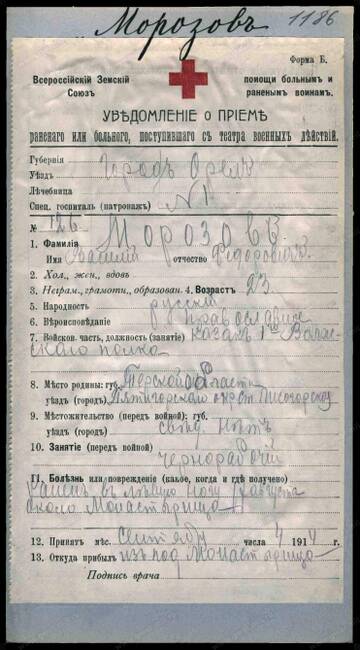 Морозовъ 1186
Форма Б.
Всероссійскій Земскій Союзъ
помощи больнымъ и раненымъ воинамъ.
УВѢДОМЛЕНІЕ О ПРІЕМѢ
раненаго или больного, поступившаго съ театра военныхъ дѣйствій.
Губернія
Уѣздъ Городъ Орелъ
Лѣчебница
Спец. госпиталь (патронажъ) №1
№ 126
1. Фамилія Морозовъ
Имя Василій отчество Федоровичъ
2. Хол., жен., вдовъ
3. Неграм., грамотн., образован. 4. Возрастъ 23
5. Народность русскій
6. Вѣроисповѣданіе православное
7. Войсков. часть, должность (занятіе) казакъ 1го
скаго полка
8. Мѣсто родины: губ. Терской Области
уѣздъ (городъ) Пятигорскаго
9. Мѣстожительство (передъ войной): губ.
уѣздъ (городъ) нѣтъ
10. Занятіе (передъ войной)
чернорабочій
11. Болѣзнь или поврежденіе (какое, когда и гдѣ получено)
Раненъ въ ногу августа
около Монастырища
12. Принятъ мѣс. Сентября числа 4 1914
13. Откуда прибылъ изъ подъ Монастырища
Подпись врача